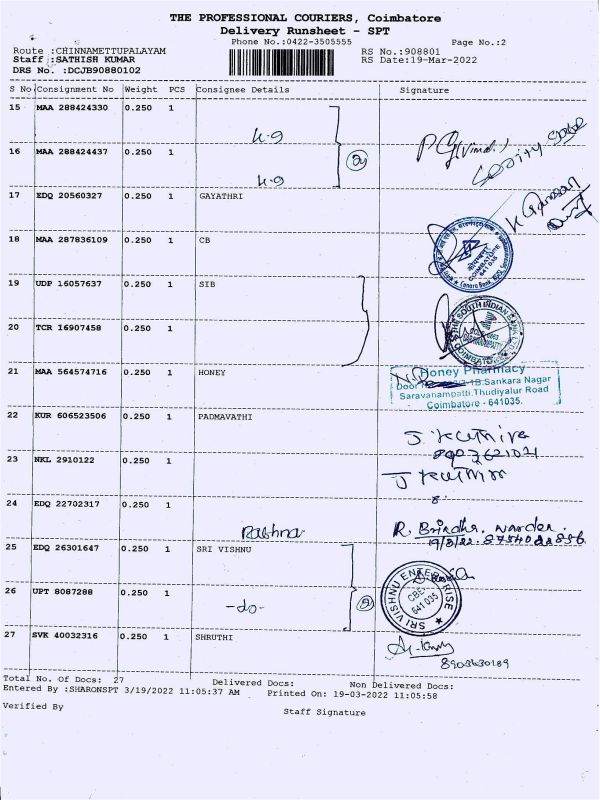 THE PROFESSIONAL COURIERS, Coimbatore
Delivery Runsheet - SPT
Phone No.:0422-3505555 Page No.:2
Route :CHINNAMETTUPALAYAM RS No.:908801
Staff :SATHISH KUMAR RS Date:19-Mar-2022
DRS No. :DCJB90880102
S No Consignment No Weight PCS Consignee Details Signature
15 MAA 288424330 0.250 1
16 MAA 288424437 0.250 1
17 EDQ 20560327 0.250 1 GAYATHRI
18 MAA 287836109 0.250 1 CB
COIMBATORE
641 035
19 UDP 16057637 0.250 1 SIB
20 TCR 16907458 0.250 1
THE SOUTH INDIAN BANK
21 MAA 564574716 0.250 1 HONEY
Honey Pharmacy
1B.Sankara Nagar
Saravanampatti.Thudiyalur Road
Coimbatore - 641035.
22 KUR 606523506 0.250 1 PADMAVATHI
23 NKL 2910122 0.250 1
24 EDQ 22702317 0.250 1
R. Brindha. warden.
25 EDQ 26301647 0.250 1 SRI VISHNU
26 UPT 8087288 0.250 1 -do-
SRI VISHNU ENTERPRISE
CBE
641 035
27 SVK 40032316 0.250 1 SHRUTHI
Total No. Of Docs: 27 Delivered Docs: Non Delivered Docs:
Entered By :SHARONSPT 3/19/2022 11:05:37 AM Printed On: 19-03-2022 11:05:58
Verified By Staff Signature